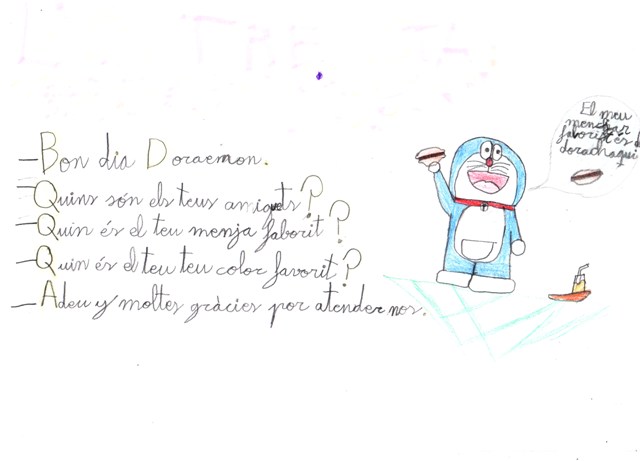 – Bon dia Doraemon.
– Quins són els teus amiguets?
– Quin és el teu menja faborit?
– Quin és el teu teu color favorit?
– Adeu y moltes gràcies por atender nos.
El meu
menchar
faborit és d
dorachaqui